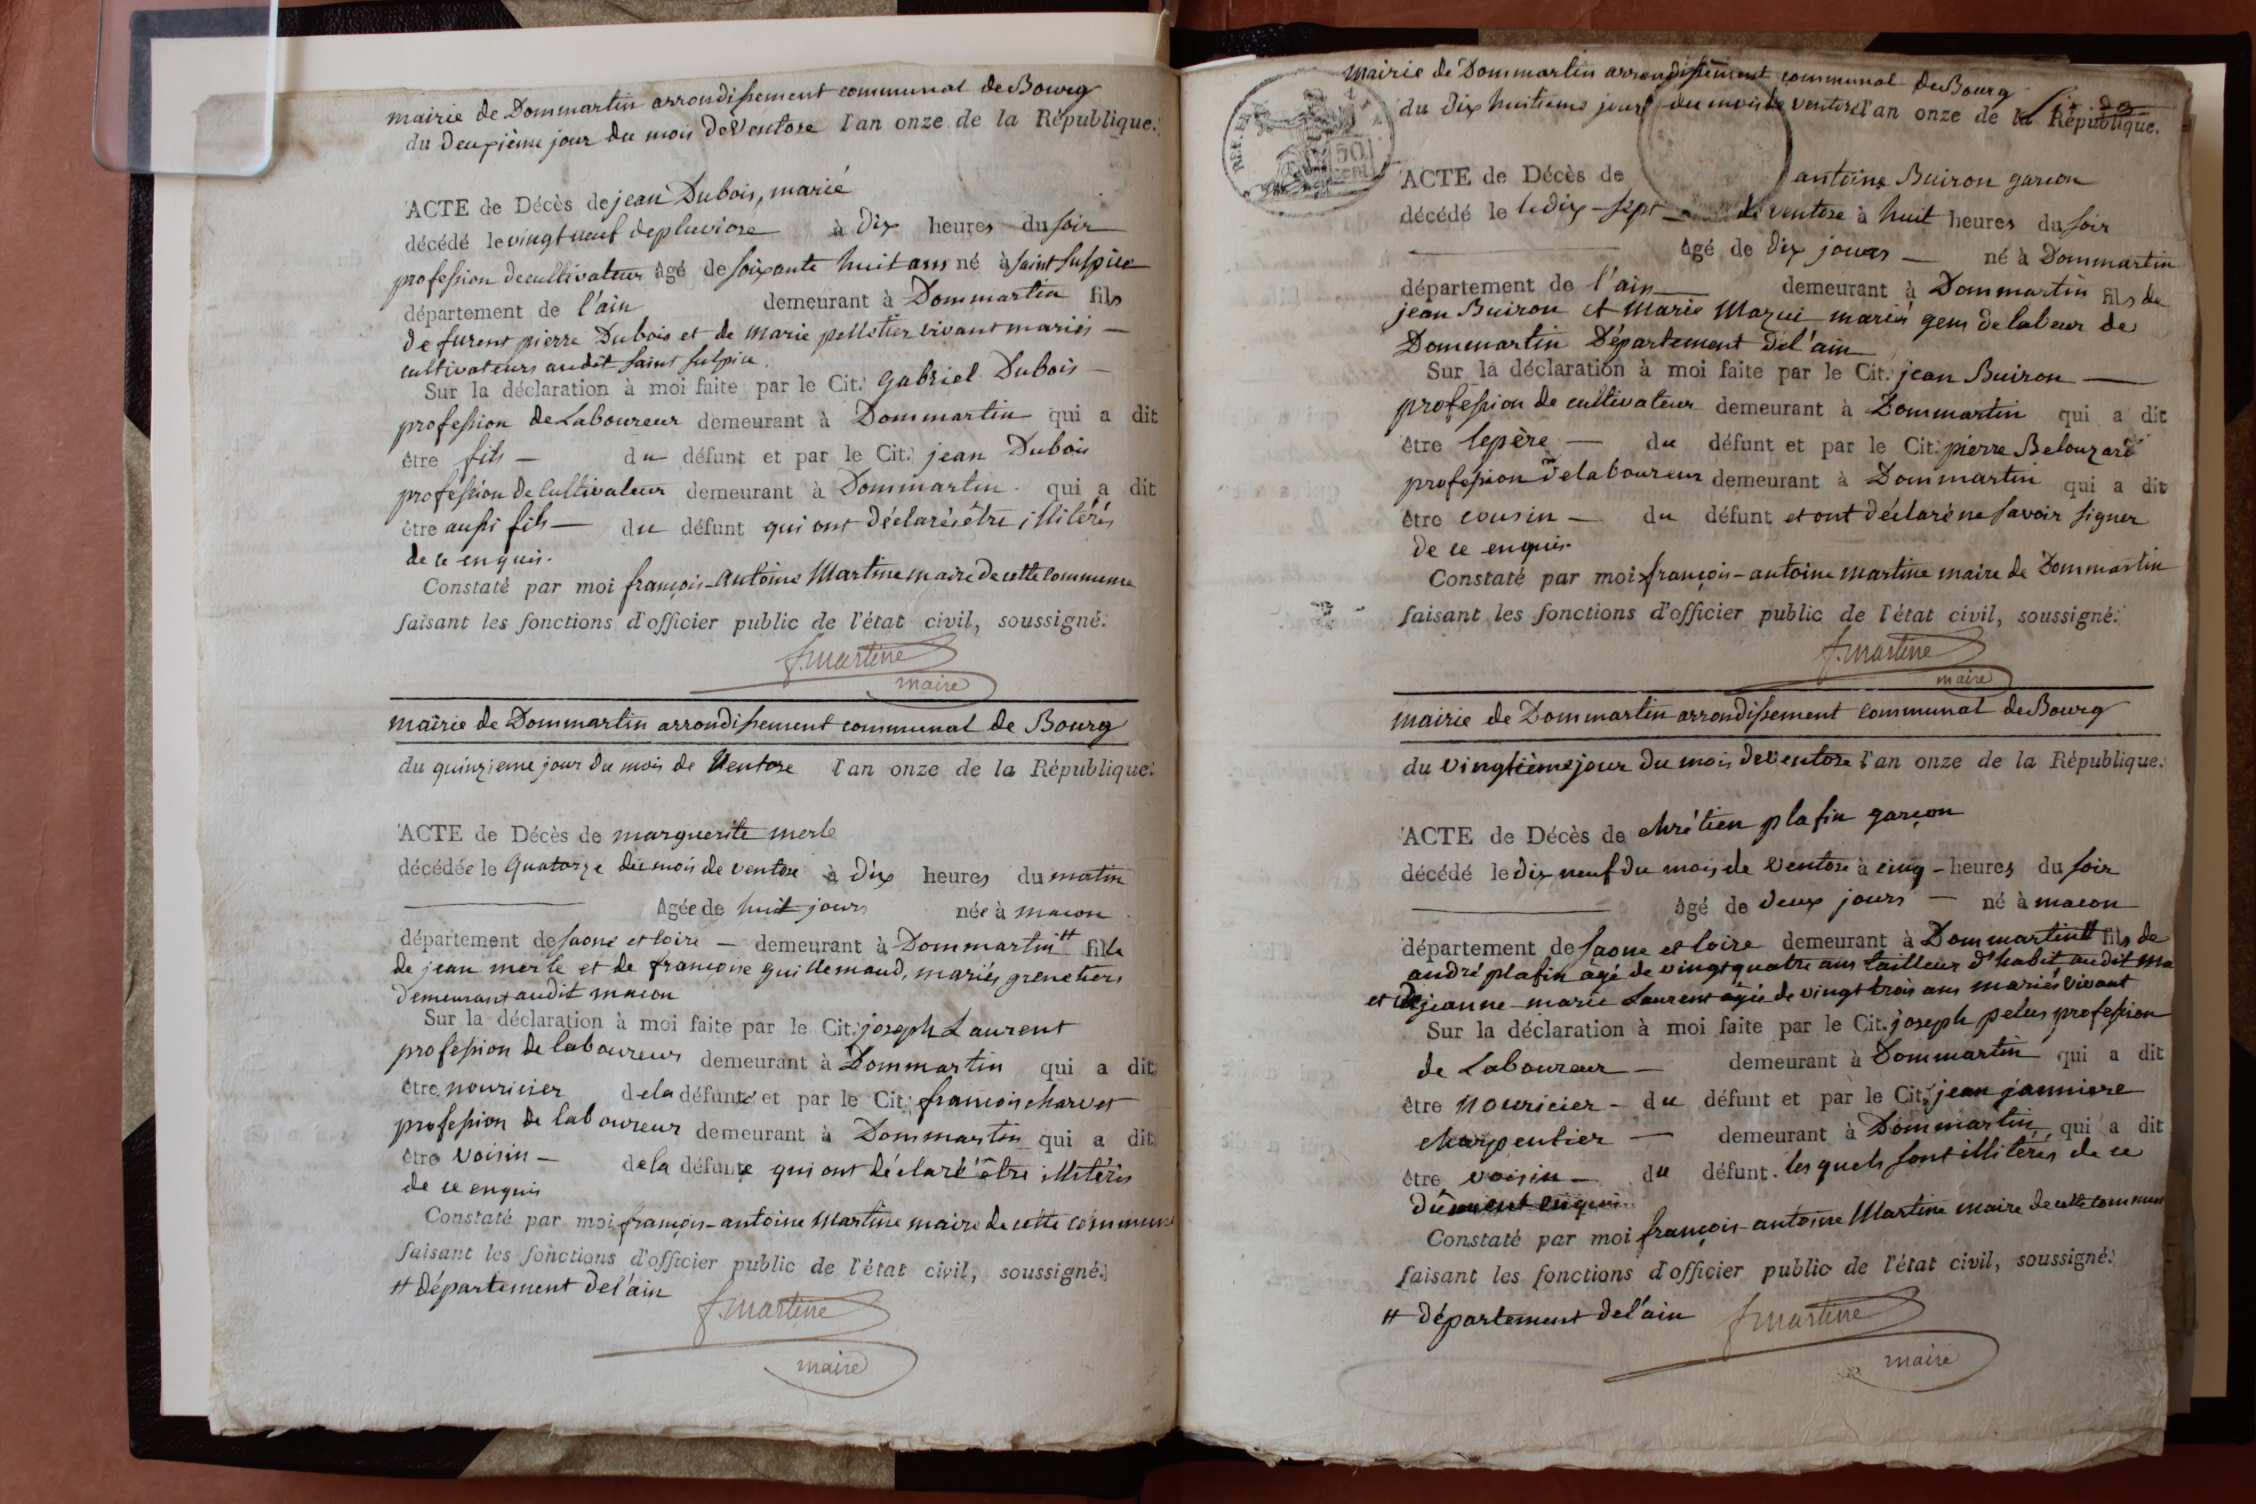 mairie de Dommartin arrondissement communal de Bourg
du deuxième jour du mois de Ventose l'an onze de la République.
ACTE de Décès de jean Dubois, marié
décédé le vingt neuf de pluviose à dix heures du soir
profession de cultivateur âgé de soixante huit ans né à saint sulpice
département de l'ain demeurant à Dommartin fils
de furent pierre Dubois et de marie pelletier vivant mariés
cultivateurs audit saint sulpice.
Sur la déclaration à moi faite par le Cit. gabriel Dubois
profession de Laboureur demeurant à Dommartin qui a dit
être fils du défunt et par le Cit. jean Dubois
profession de Cultivateur demeurant à Dommartin qui a dit
être aussi fils du défunt qui ont déclarés être illitérés
de ce enquis.
Constaté par moi françois-antoine Martine maire de cette commune
faisant les fonctions d'officier public de l'état civil, soussigné.
f. martine
maire
mairie de Dommartin arrondissement communal de Bourg
du quinzieme jour du mois de Ventose l'an onze de la République.
ACTE de Décès de marguerite merle
décédée le quatorze du mois de ventose à dix heures du matin
âgée de huit jours née à macon
département de saone et loire demeurant à Dommartin # fille
de jean merle et de francoise guillemaud, mariés, grenetiers
demeurant audit macon
Sur la déclaration à moi faite par le Cit. joseph Laurent
profession de laboureur demeurant à Dommartin qui a dit
être nouricier de la défunte et par le Cit. francois charvet
profession de laboureur demeurant à Dommartin qui a dit
être voisin de la défunte qui ont déclaré être illitérés
de ce enquis
Constaté par moi françois-antoine Martine maire de cette commune
faisant les fonctions d'officier public de l'état civil, soussigné.
# département de l'ain
f. martine
maire
mairie de Dommartin arrondissement communal de Bourg
du dix huitieme jour du mois de ventose l'an onze de la République.
REP
50
CENT
ACTE de Décès de antoine Buiron garcon
décédé le le dix-sept de ventose à huit heures du soir
âgé de dix jours né à Dommartin
département de l'ain demeurant à Dommartin fils de
jean Buiron et Marie Mazui mariés gens de labeur de
Dommartin Département de l'ain
Sur la déclaration à moi faite par le Cit. jean Buiron
profession de cultivateur demeurant à Dommartin qui a dit
être le père du défunt et par le Cit. pierre Belouzard
profession de laboureur demeurant à Dommartin qui a dit
être cousin du défunt et ont déclaré ne savoir signer
de ce enquis.
Constaté par moi françois-antoine martine maire de Dommartin
faisant les fonctions d'officier public de l'état civil, soussigné.
f. martine
maire
mairie de Dommartin arrondissement communal de Bourg
du vingtième jour du mois de ventose l'an onze de la République.
ACTE de Décès de chrétien plafin garçon
décédé le dix neuf du mois de Ventose à cinq heures du soir
âgé de deux jours né à macon
département de saone et loire demeurant à Dommartin # fils de
andré plafin âgé de vingt quatre ans tailleur d'habit audit ma
et de jeanne-marie Laurent âgée de vingt trois ans mariés vivant
Sur la déclaration à moi faite par le Cit. joseph pelus profession
de Laboureur demeurant à Dommartin qui a dit
être nouricier du défunt et par le Cit. jean janniere
charpentier demeurant à Dommartin qui a dit
être voisin du défunt. les quels sont illitérés de ce
dûment enquis.
Constaté par moi françois-antoine Martine maire de cette commun
faisant les fonctions d'officier public de l'état civil, soussigné.
# département de l'ain
f martine
maire